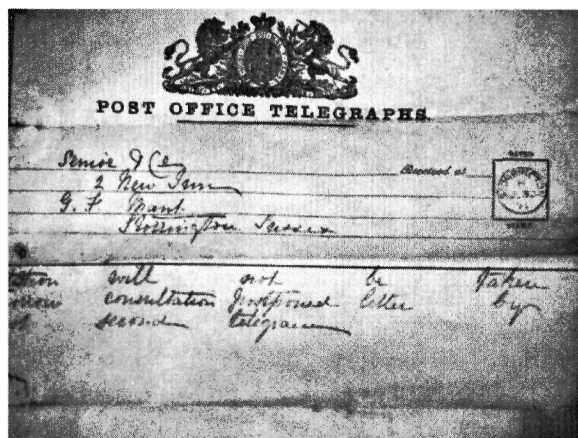 POST OFFICE TELEGRAPHS
Senior & Co
2 New Inn
Received at
G. F. Mant
Storrington Sussex
will not be taken
consultation postponed letter by
second telegram